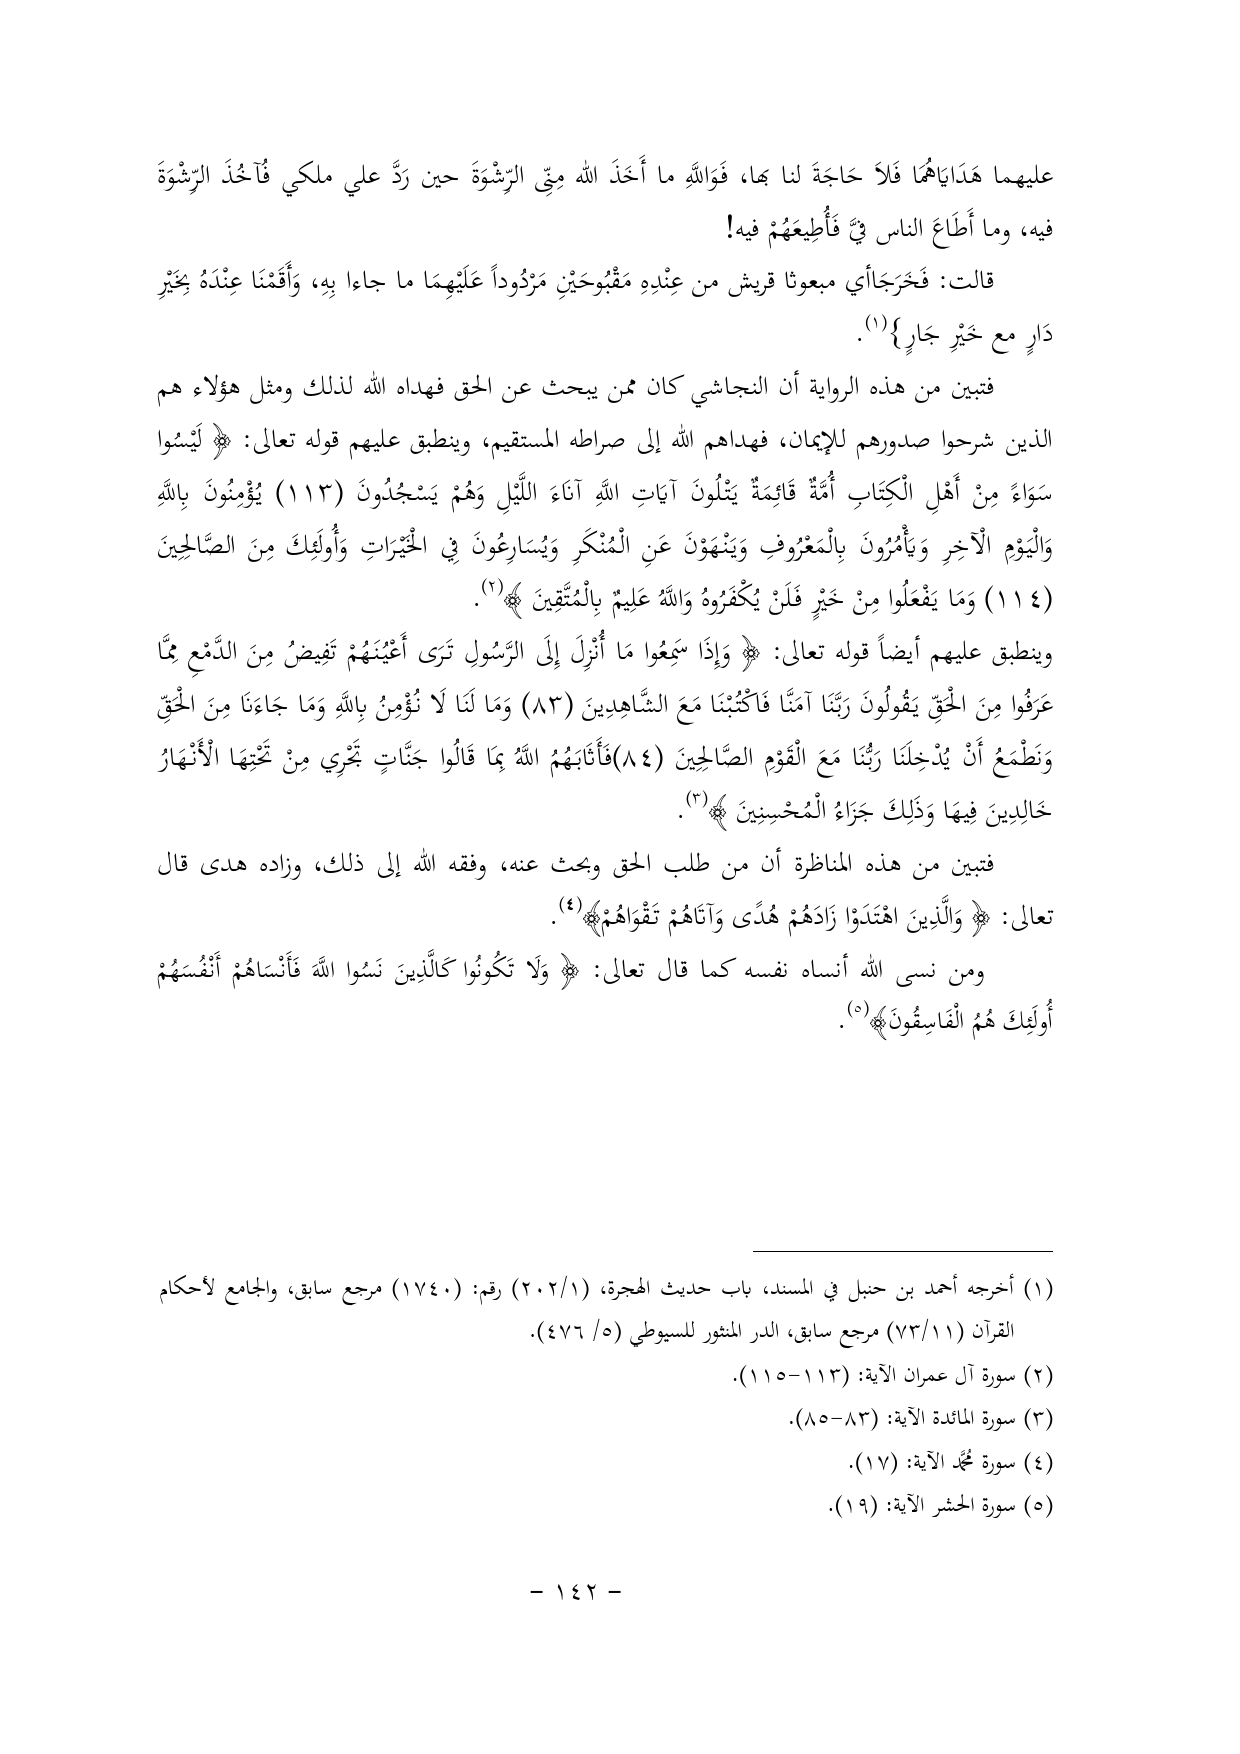 عليهما هَدَايَاهُمَا فَلاَ حَاجَةَ لنا بها، فَوَاللَّهِ ما أَخَذَ الله مِنِّى الرِّشْوَةَ حين رَدَّ علي ملكي فَآخُذَ الرِّشْوَةَ
فيه، وما أَطَاعَ الناس فيَّ فَأُطِيعَهُمْ فيه!
قالت: فَخَرَجَاأي مبعوثا قريش من عِنْدِهِ مَقْبُوحَيْنِ مَرْدُوداً عَلَيْهِمَا ما جاءا بِهِ، وَأَقَمْنَا عِنْدَهُ بِخَيْرِ
دَارٍ مع خَيْرِ جَارٍ}(١).
فتبين من هذه الرواية أن النجاشي كان ممن يبحث عن الحق فهداه الله لذلك ومثل هؤلاء هم
الذين شرحوا صدورهم للإيمان، فهداهم الله إلى صراطه المستقيم، وينطبق عليهم قوله تعالى: ﴿ لَيْسُوا
سَوَاءً مِنْ أَهْلِ الْكِتَابِ أُمَّةٌ قَائِمَةٌ يَتْلُونَ آيَاتِ اللَّهِ آنَاءَ اللَّيْلِ وَهُمْ يَسْجُدُونَ (١١٣) يُؤْمِنُونَ بِاللَّهِ
وَالْيَوْمِ الْآخِرِ وَيَأْمُرُونَ بِالْمَعْرُوفِ وَيَنْهَوْنَ عَنِ الْمُنْكَرِ وَيُسَارِعُونَ فِي الْخَيْرَاتِ وَأُولَئِكَ مِنَ الصَّالِحِينَ
(١١٤) وَمَا يَفْعَلُوا مِنْ خَيْرٍ فَلَنْ يُكْفَرُوهُ وَاللَّهُ عَلِيمٌ بِالْمُتَّقِينَ ﴾(٢).
وينطبق عليهم أيضاً قوله تعالى: ﴿ وَإِذَا سَمِعُوا مَا أُنْزِلَ إِلَى الرَّسُولِ تَرَى أَعْيُنَهُمْ تَفِيضُ مِنَ الدَّمْعِ مِمَّا
عَرَفُوا مِنَ الْحَقِّ يَقُولُونَ رَبَّنَا آمَنَّا فَاكْتُبْنَا مَعَ الشَّاهِدِينَ (٨٣) وَمَا لَنَا لَا نُؤْمِنُ بِاللَّهِ وَمَا جَاءَنَا مِنَ الْحَقِّ
وَنَطْمَعُ أَنْ يُدْخِلَنَا رَبُّنَا مَعَ الْقَوْمِ الصَّالِحِينَ (٨٤)فَأَثَابَهُمُ اللَّهُ بِمَا قَالُوا جَنَّاتٍ تَجْرِي مِنْ تَحْتِهَا الْأَنْهَارُ
خَالِدِينَ فِيهَا وَذَلِكَ جَزَاءُ الْمُحْسِنِينَ ﴾(٣).
فتبين من هذه المناظرة أن من طلب الحق وبحث عنه، وفقه الله إلى ذلك، وزاده هدى قال
تعالى: ﴿ وَالَّذِينَ اهْتَدَوْا زَادَهُمْ هُدًى وَآتَاهُمْ تَقْوَاهُمْ﴾(٤).
ومن نسى الله أنساه نفسه كما قال تعالى: ﴿ وَلَا تَكُونُوا كَالَّذِينَ نَسُوا اللَّهَ فَأَنْسَاهُمْ أَنْفُسَهُمْ
أُولَئِكَ هُمُ الْفَاسِقُونَ﴾(٥).
(١) أخرجه أحمد بن حنبل في المسند، باب حديث الهجرة، (٢٠٢/١) رقم: (١٧٤٠) مرجع سابق، والجامع لأحكام
القرآن (٧٣/١١) مرجع سابق، الدر المنثور للسيوطي (٥/ ٤٧٦).
(٢) سورة آل عمران الآية: (١١٣-١١٥).
(٣) سورة المائدة الآية: (٨٣-٨٥).
(٤) سورة مُحَمَّد الآية: (١٧).
(٥) سورة الحشر الآية: (١٩).
- ١٤٢ -